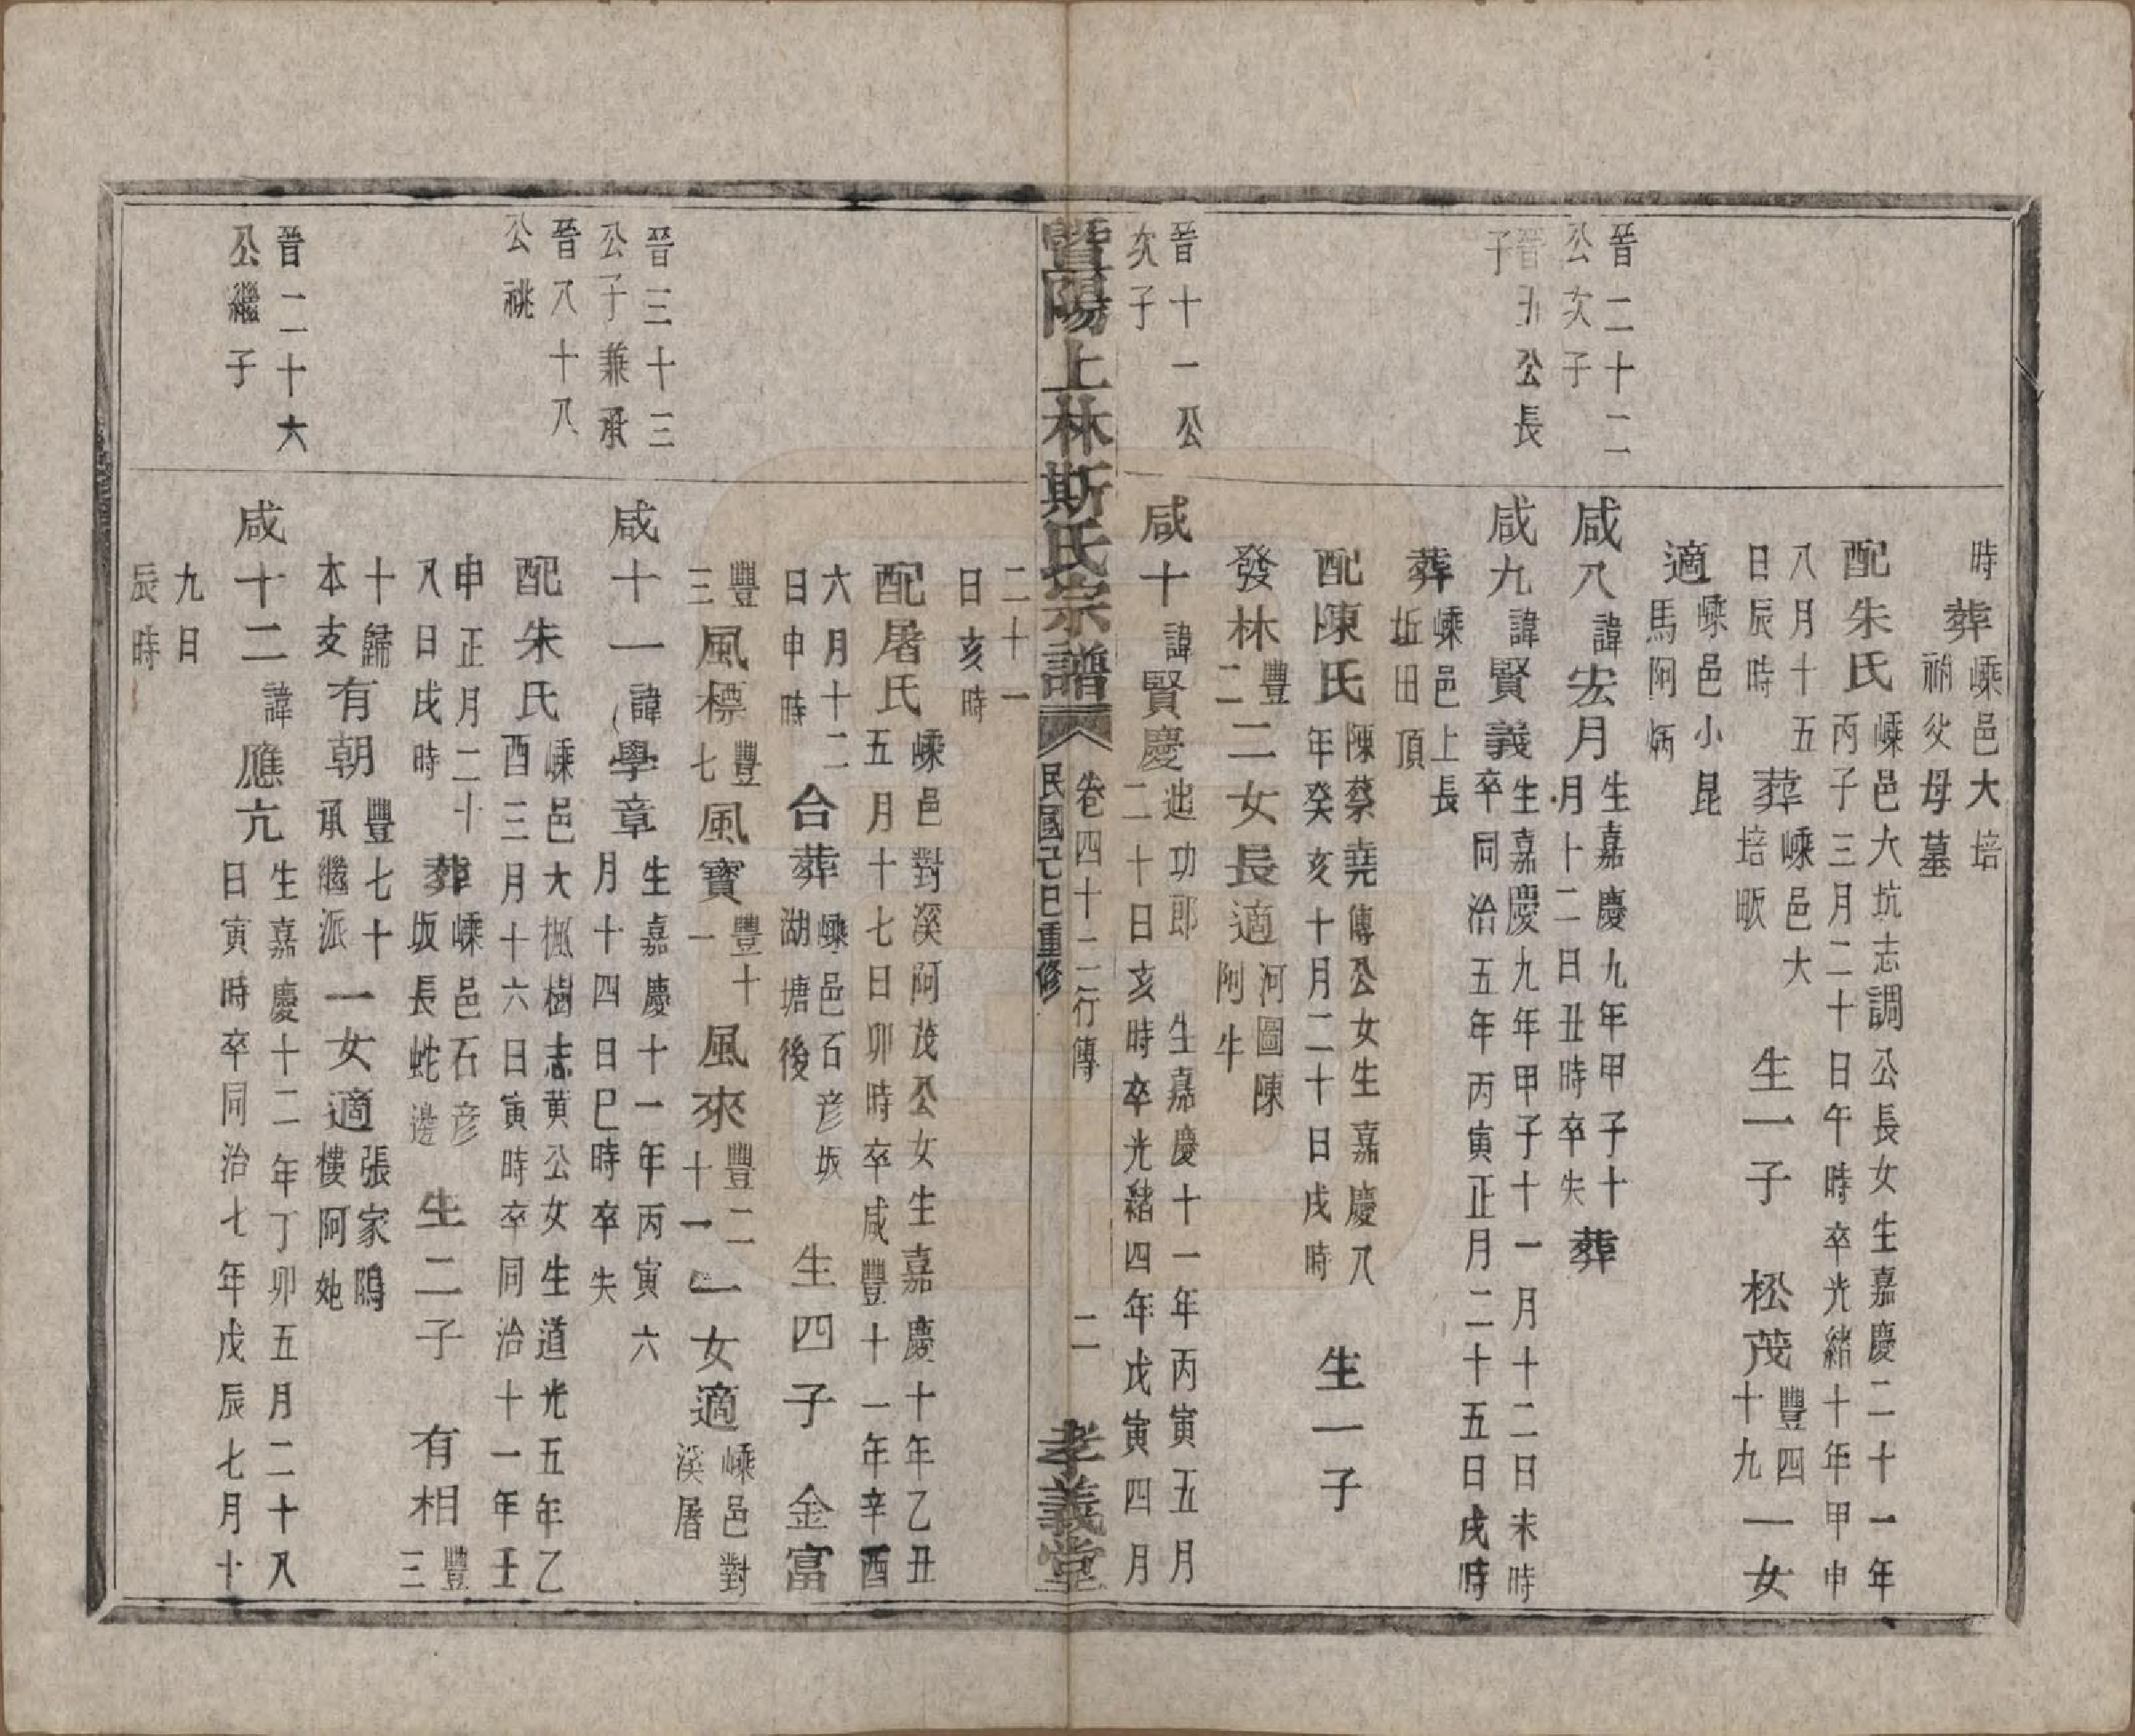 時葬嵊邑大培
祔父母墓
配朱氏嵊邑大坑志調公長女生嘉慶二十一年
丙子三月二十日午時卒光緒十年甲申
八月十五
日辰時葬嵊邑大
培畈生一子松茂豐四
十九一女
適嵊邑小昆
馬阿炳
晉二十二
公次子
咸八諱宏月生嘉慶九年甲子十
月十二日丑時卒失葬
晉五公長
子
咸九諱賢義生嘉慶九年甲子十一月十二日未時
卒同治五年丙寅正月二十五日戌時
葬嵊邑上長
坵田頂
配陳氏陳蔡堯傳公女生嘉慶八
年癸亥十月二十日戌時生一子
發林豐
二二女長適河圖陳
阿牛
晉十一公
次子
咸十諱賢慶迆功郎生嘉慶十一年丙寅五月
二十日亥時卒光緒四年戊寅四月
暨陽上林斯氏宗譜
卷四十二行傳
民國己巳重修
二
孝義堂
二十一
日亥時
配屠氏嵊邑對溪阿茂公女生嘉慶十年乙丑
五月十七日卯時卒咸豐十一年辛酉
六月十二
日申時合葬嵊邑石彥坂
湖塘後生四子金富
豐
三風標豐
七風寶豐十
一風來豐二
十一一女適嵊邑對
溪屠
晉三十三
公子兼承
晉八十八
公祧
咸十一諱學章生嘉慶十一年丙寅六
月十四日巳時卒失
配朱氏嵊邑大楓樹志黃公女生道光五年乙
酉三月十六日寅時卒同治十一年壬
申正月二十
八日戌時葬嵊邑石彥
坂長蛇邊生二子有相豐
三
十歸
本支有朝豐七十
承繼派一女適張家隝
樓阿她
晉二十六
公繼子
咸十二諱應亢生嘉慶十二年丁卯五月二十八
日寅時卒同治七年戊辰七月十
九日
辰時